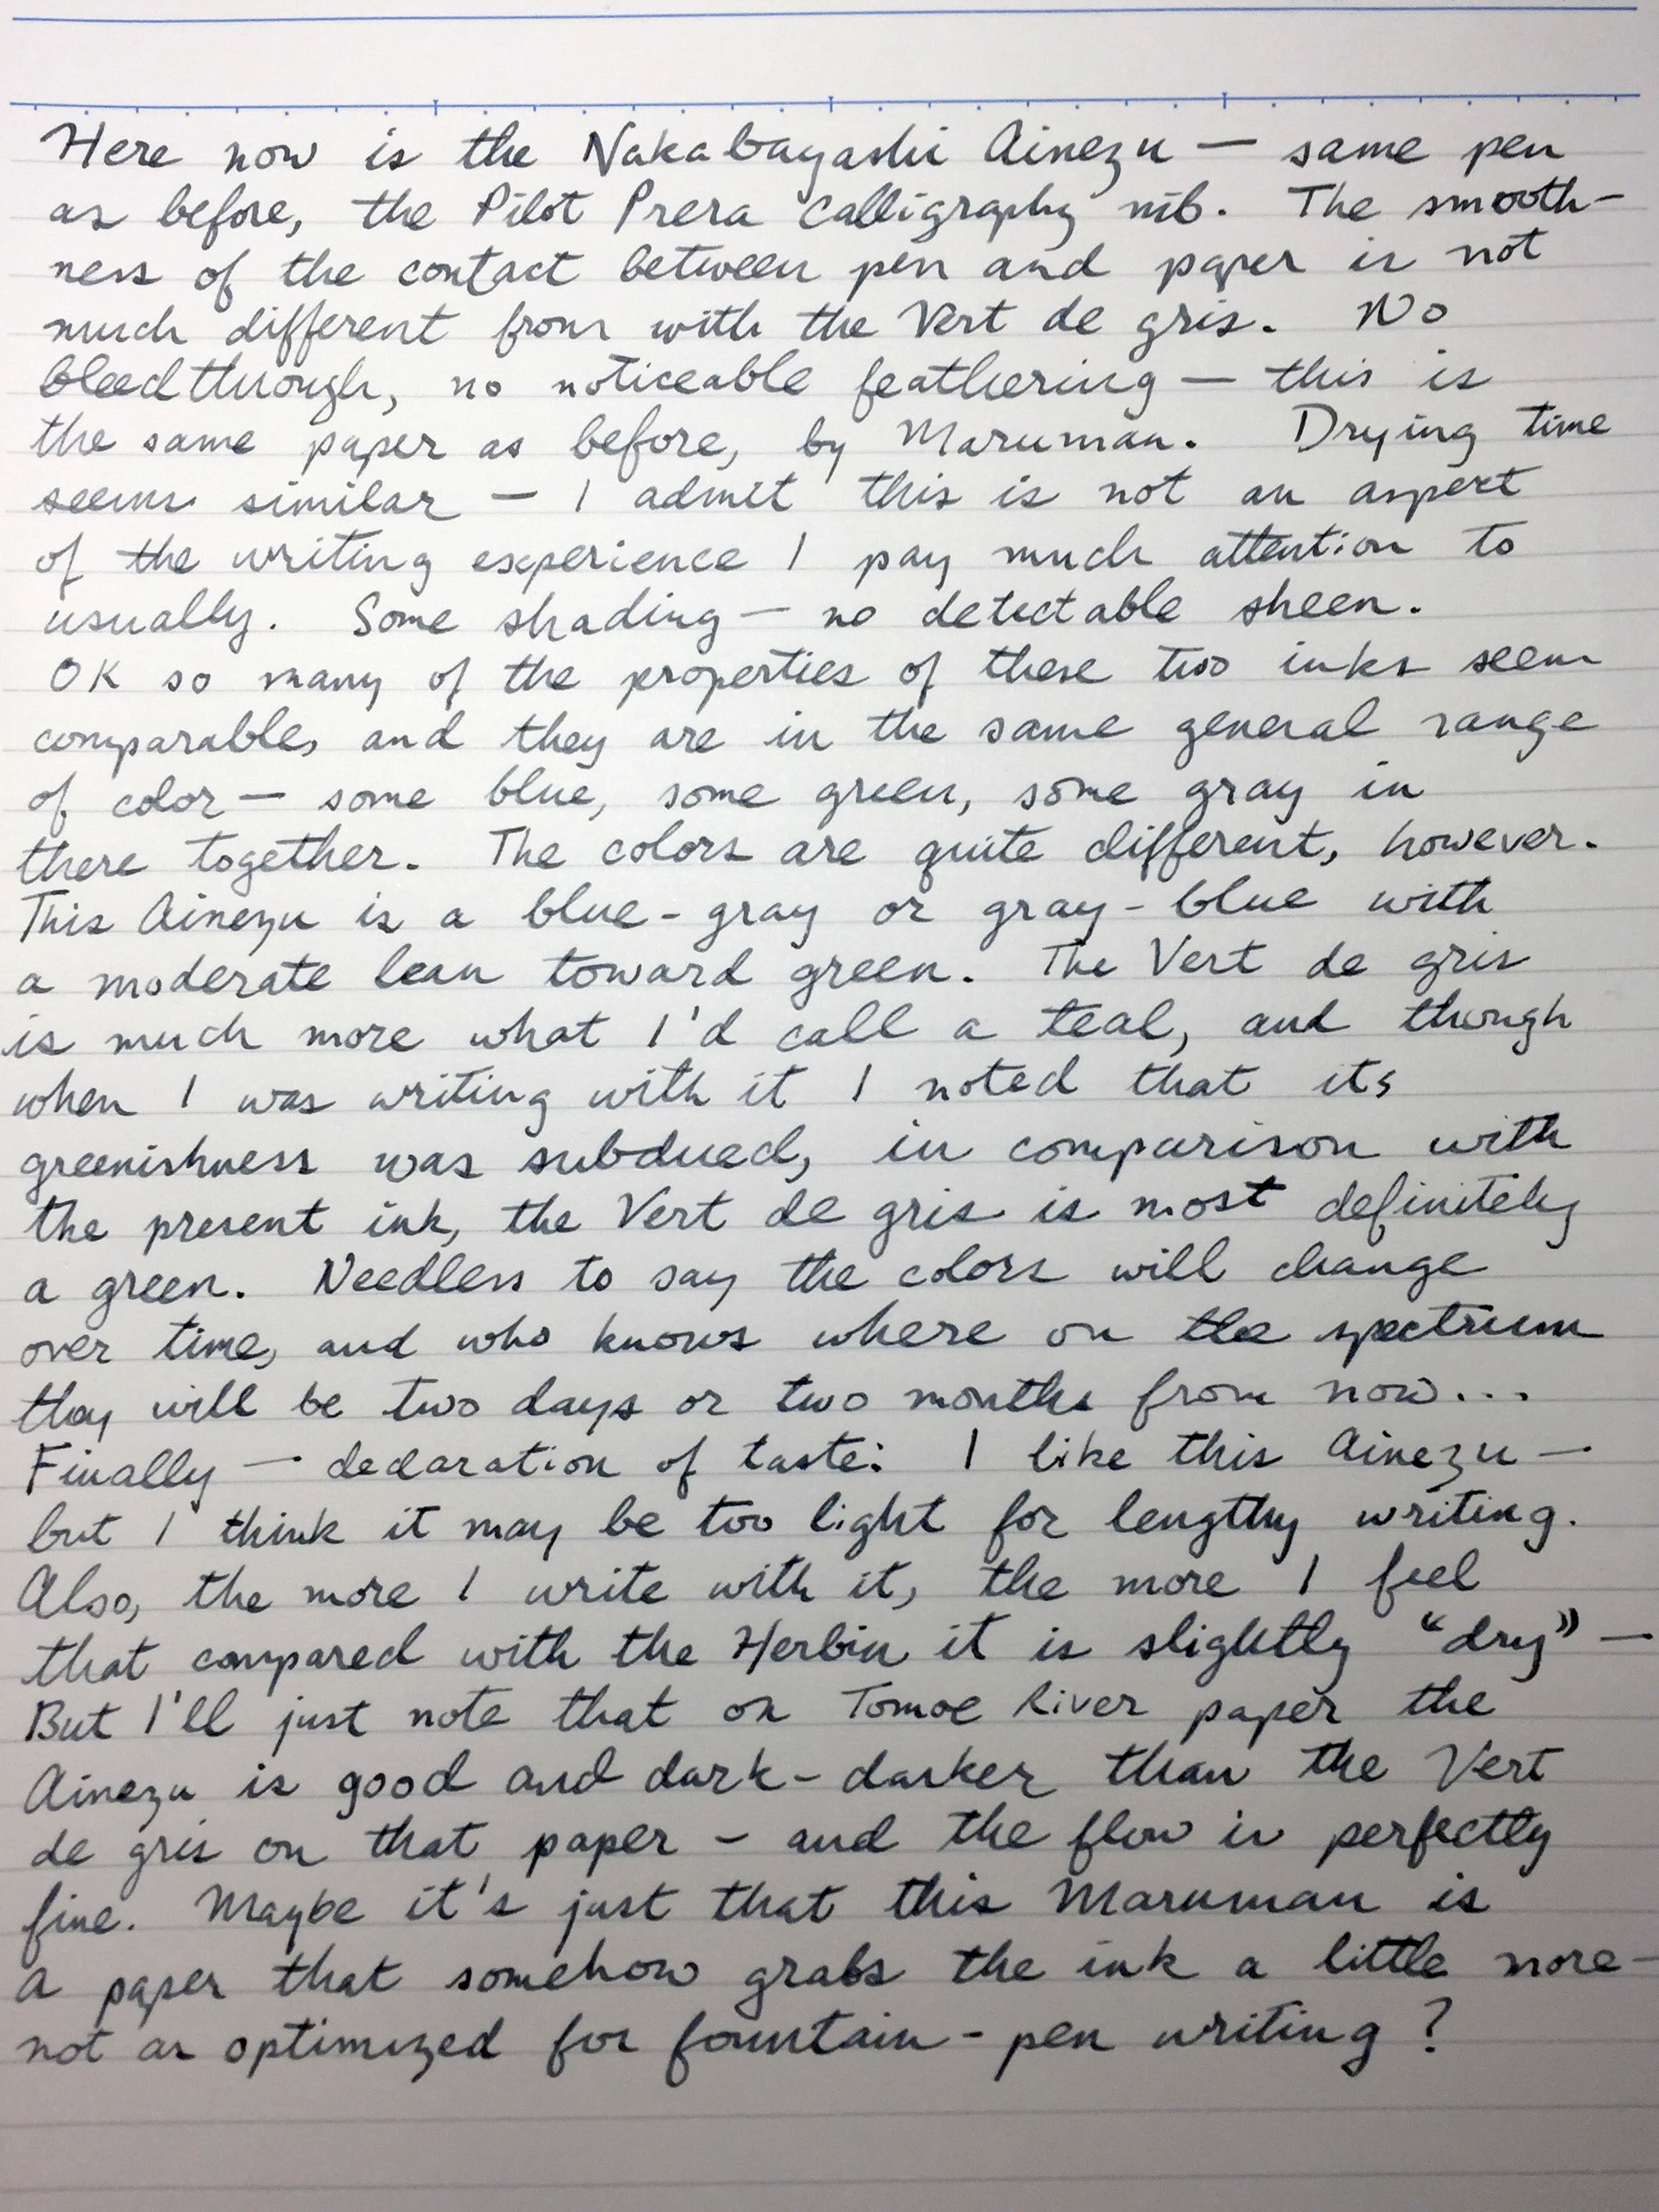 Here now is the Nakabayashi Ainezu — same pen
as before, the Pilot Prera calligraphy nib. The smooth-
ness of the contact between pen and paper is not
much different from with the Vert de gris. No
bleedthrough, no noticeable feathering — this is
the same paper as before, by Maruman. Drying time
seems similar — I admit this is not an aspect
of the writing experience I pay much attention to
usually. Some shading — no detectable sheen.
OK so many of the properties of these two inks seem
comparable, and they are in the same general range
of color — some blue, some green, some gray in
there together. The colors are quite different, however.
This Ainezu is a blue-gray or gray-blue with
a moderate lean toward green. The Vert de gris
is much more what I'd call a teal, and though
when I was writing with it I noted that its
greenishness was subdued, in comparison with
the present ink, the Vert de gris is most definitely
a green. Needless to say the colors will change
over time, and who knows where on the spectrum
they will be two days or two months from now...
Finally — declaration of taste: I like this Ainezu —
but I think it may be too light for lengthy writing.
Also, the more I write with it, the more I feel
that compared with the Herbin it is slightly "dry" —
But I'll just note that on Tomoe River paper the
Ainezu is good and dark - darker than the Vert
de gris on that paper - and the flow is perfectly
fine. Maybe it's just that this Maruman is
a paper that somehow grabs the ink a little more -
not as optimized for fountain-pen writing?